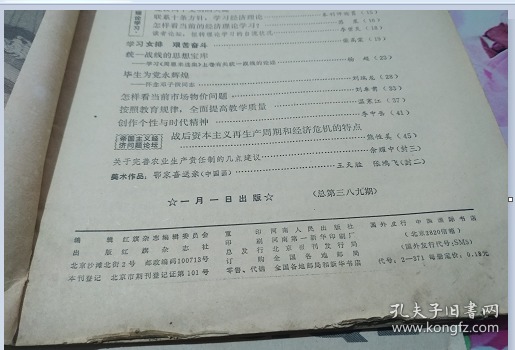 联系十条方针，学习经济理论
怎样看当前的经济理论学习？
学习女排 艰苦奋斗
统一战线的思想宝库
——学习《周恩来选集》上卷有关统一战线的论述 杨超(23)
毕生为党永辉煌
怎样看当前市场物价问题 (31)
按照教育规律，全面提高教学质量 温寒江(37)
创作个性与时代精神 李中书(41)
帝国主义经济问题论坛
战后资本主义再生产周期和经济危机的特点 熊性美(45)
关于完善农业生产责任制的几点建议 余耀中(封三)
美术作品：鄂家喜送亲(中国画) 王天胜 张鸿飞(封二)
☆一月一日出版☆ (总第三八九期)
编辑 红旗杂志编辑委员会
出版 红旗杂志社
北京沙滩北街2号 邮政编码100713号
本刊登记 北京市期刊登记证第101号
重印 河南人民出版社
印刷 河南第一新华印刷厂
总发行 北京市报刊发行局
订购 全国各地邮局
零售、代销 全国各地邮局和新华书店
国外发行 中国国际书店
(北京2820信箱)
(国外发行代号：SM5)
代号：2—371 每册定价：0.18元
孔夫子旧书网
www.kongfz.com